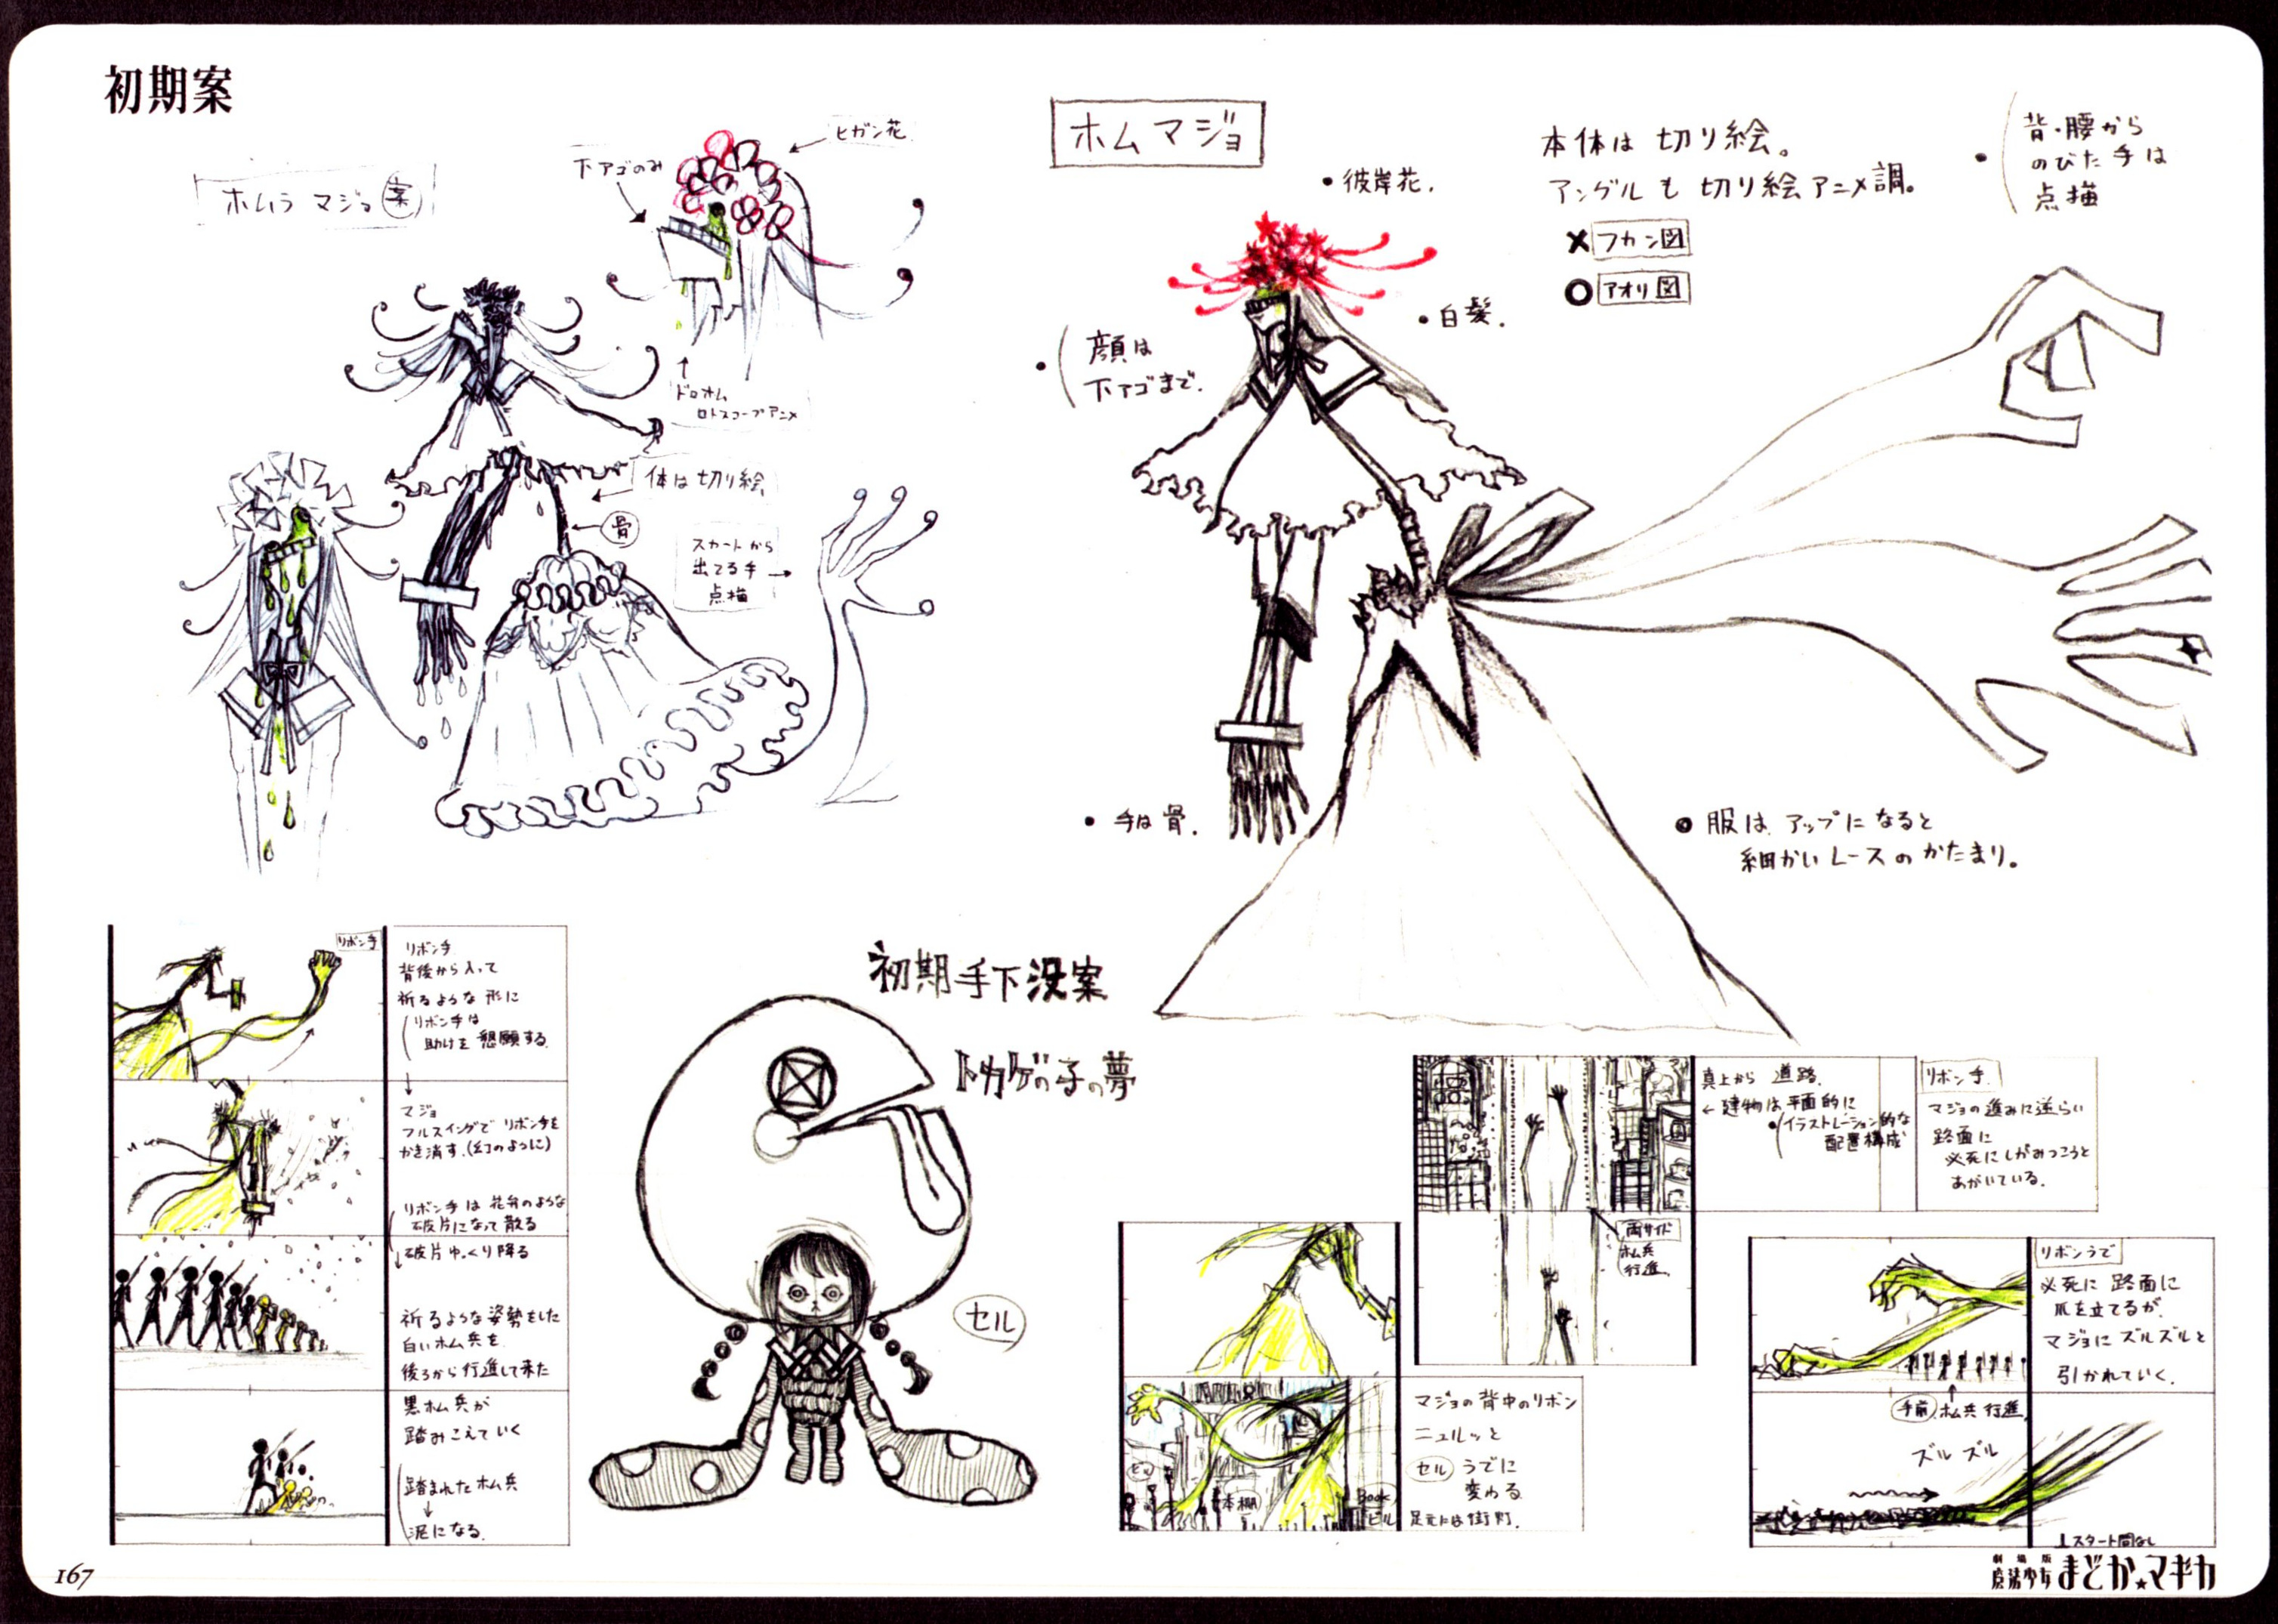 初期案
ホムラ マジョ 案
下アゴのみ
ヒガン花
ドロオム
ロトスコープアニメ
体は切り絵
骨
スカートから
出てる手
点描
ホムマジョ
・彼岸花.
本体は 切り絵。
アングルも 切り絵アニメ調。
× フカン図
○ アオリ図
・背・腰から
のびた手は
点描
・白髪.
・顔は
下アゴまで.
・手は骨.
・服は アップになると
細かいレースのかたまり。
リボン手
リボン手
背後から入って
祈るような形に
リボン手は
助けを懇願する
マジョ
フルスイングでリボン手を
かき消す.(幻のように)
リボン手は花弁のような
破片になって散る
破片ゆっくり降る
祈るような姿勢をした
白いホム兵を
後ろから行進して来た
黒ホム兵が
踏みこえていく
踏まれたホム兵
↓
泥になる.
初期手下没案
トカゲの子の夢
セル
真上から 道路.
← 建物は平面的に
イラストレーション的な
配置構成
リボン手.
マジョの進みに逆らい
路面に
必死にしがみつこうと
あがいている.
両サイド
ホム兵
行進.
ビル
本棚
Book
ビル
マジョの背中のリボン
ニュルッと
セル うでに
変わる
足元には街灯.
リボンうで
必死に路面に
爪を立てるが.
マジョにズルズルと
引かれていく.
手前 ホム兵行進
ズルズル
スタート間なし
167
劇場版
魔法少女まどか★マギカ